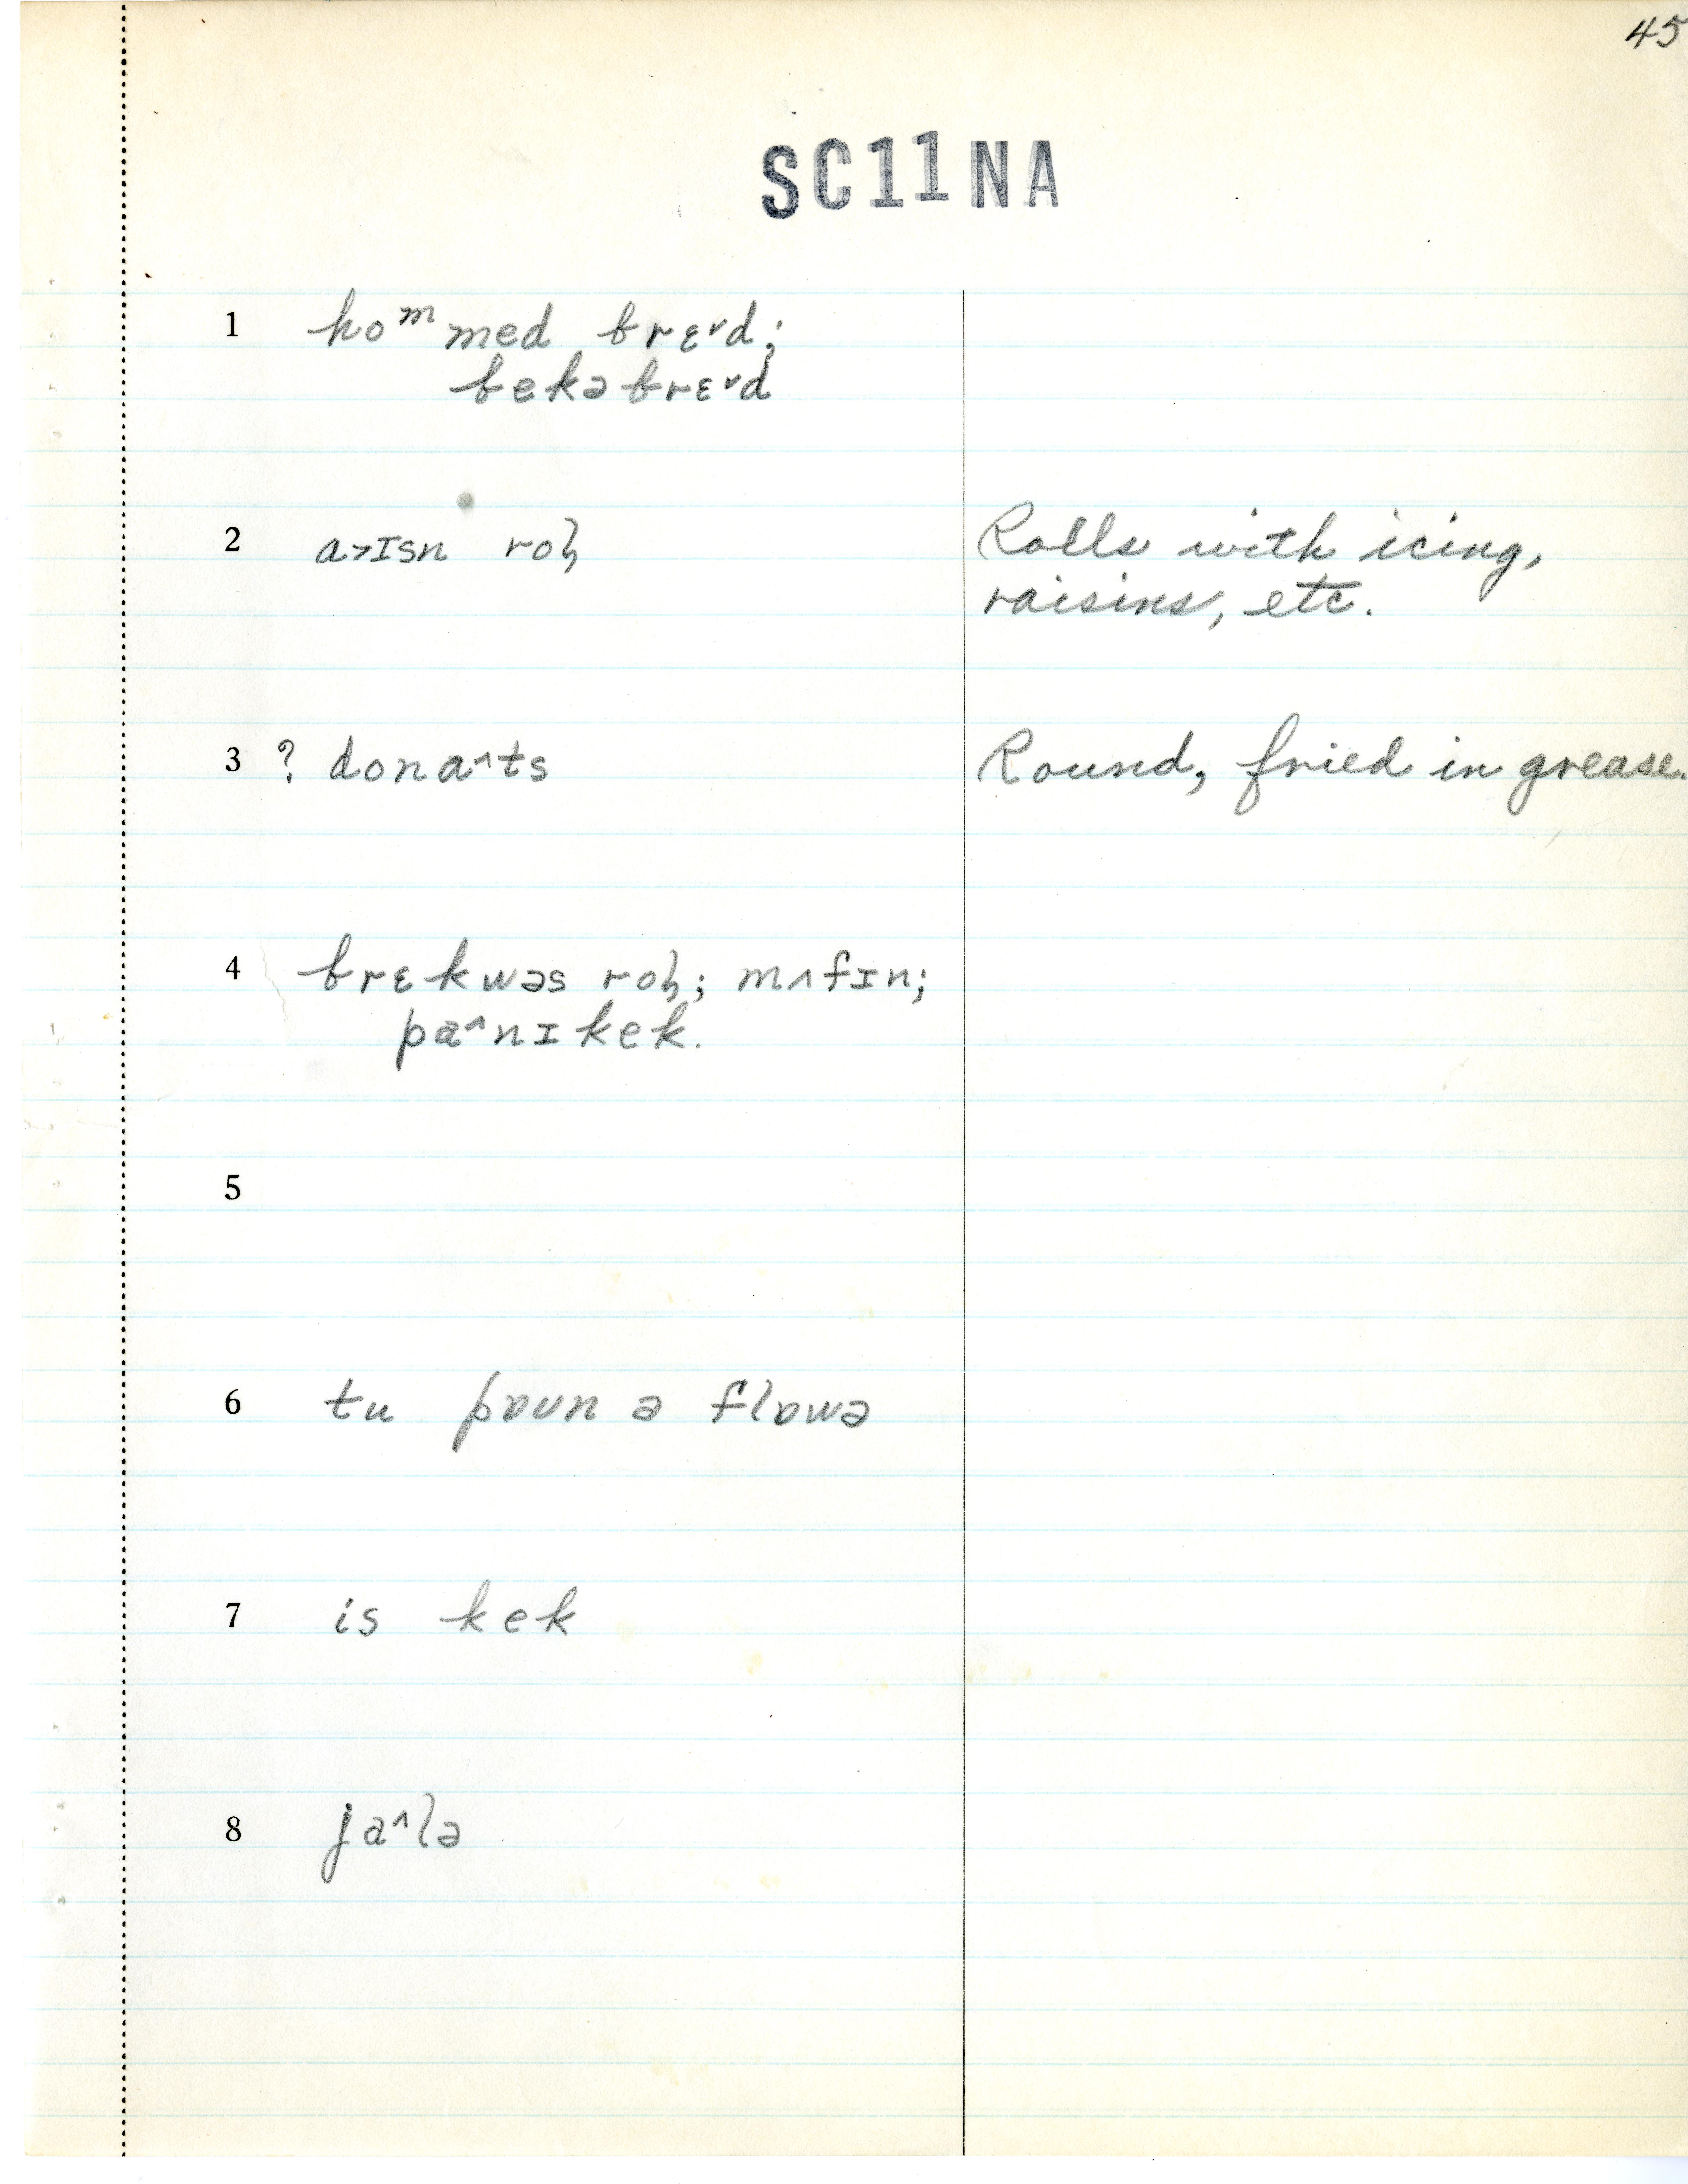 45
SC11NA
1 hoᵐmed brɛ˅d;
bekəbrɛ˅d
2 a˃ɪsn rol̡ Rolls with icing,
raisins, etc.
3 ? dona˄ts Round, fried in grease.
4 brɛkwəs rol̡; mʌfɪn;
pa˄nɪkek.
5
6 tu pɒun ə flɒwə
7 is kek
8 ja˄lə